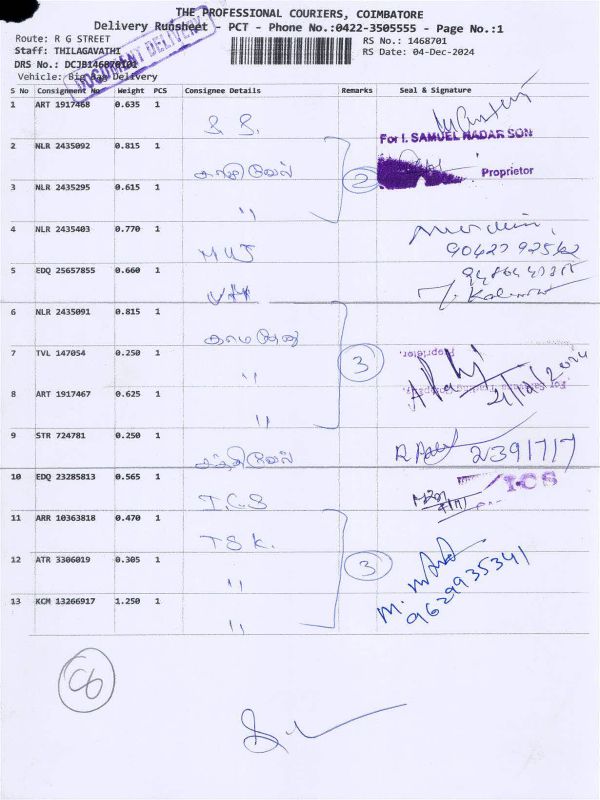 THE PROFESSIONAL COURIERS, COIMBATORE
Delivery Runsheet - PCT - Phone No.:0422-3505555 - Page No.:1
Route: R G STREET RS No.: 1468701
Staff: THILAGAVATHI RS Date: 04-Dec-2024
DRS No.: DCJB146870101
Vehicle: Big Bag Delivery
DOCUMENT DELIVERY
S No Consignment No Weight PCS Consignee Details Remarks Seal & Signature
1 ART 1917468 0.635 1 S. S.
For I. SAMUEL NADAR SON
2 NLR 2435092 0.815 1 2
Proprietor
3 NLR 2435295 0.615 1 ,,
4 NLR 2435403 0.770 1
5 EDQ 25657855 0.660 1
6 NLR 2435091 0.815 1
7 TVL 147054 0.250 1 ,, 3 Proprietor.
8 ART 1917467 0.625 1 ,,
9 STR 724781 0.250 1 2391717
10 EDQ 23285813 0.565 1 I.C.S ICS
11 ARR 10363818 0.470 1 T S K.
12 ATR 3306019 0.305 1 ,, 3
9629935341
13 KCM 13266917 1.250 1 ,,